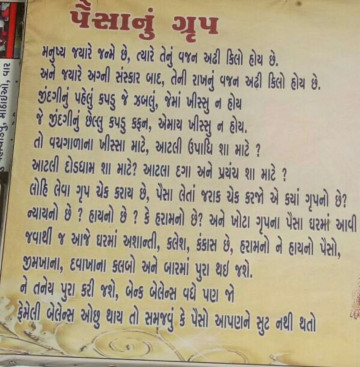 પૈસાનું ગૃપ
મનુષ્ય જયારે જન્મે છે, ત્યારે તેનું વજન અઢી કિલો હોય છે.
અને જયારે અગ્ની સંસ્કાર બાદ, તેની રાખનું વજન અઢી કિલો હોય છે.
જીંદગીનું પહેલું કપડુ જે ઝબલું, જેમાં ખીસ્સુ ન હોય
જે જીંદગીનું છેલ્લુ કપડુ કફન, એમાય ખીસ્સુ ન હોય.
તો વચગાળાના ખીસ્સા માટે, આટલી ઉપાધિ શા માટે ?
આટલી દોડધામ શા માટે? આટલા દગા અને પ્રપંચ શા માટે ?
લોહિ લેવા ગૃપ ચેક કરાય છે, પૈસા લેતાં જરાક ચેક કરજો એ ક્યાં ગૃપનો છે?
ન્યાયનો છે ? હાયનો છે ? કે હરામનો છે? અને ખોટા ગૃપના પૈસા ઘરમાં આવી
જવાથી જ આજે ઘરમાં અશાન્તી, કલેશ, કંકાસ છે, હરામનો ને હાયનો પૈસો,
જીમખાના, દવાખાના કલબો અને બારમાં પુરા થઈ જશે.
ને તનેય પુરા કરી જશે, બેન્ક બેલેન્સ વધે પણ જો
ફેમેલી બેલેન્સ ઓછુ થાય તો સમજવું કે પૈસો આપણને સુટ નથી થતો